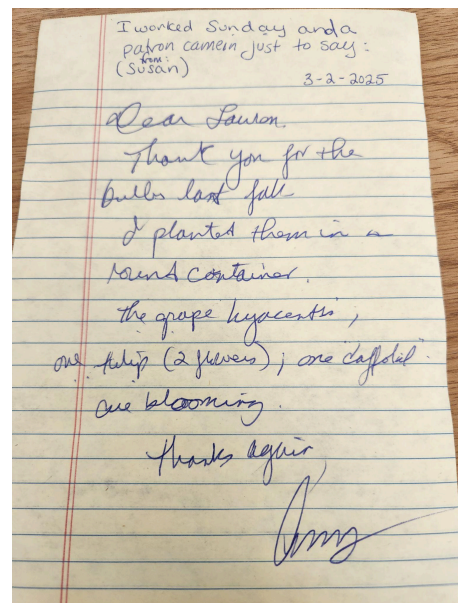 I worked Sunday and a
patron came in just to say:
from:
(Susan)
3-2-2025
Dear Lauren.
Thank you for the
bulbs last fall
I planted them in a
round container.
The grape hyacenths,
one tulip (2 flowers); one daffodil
are blooming.
Thanks again
Amy